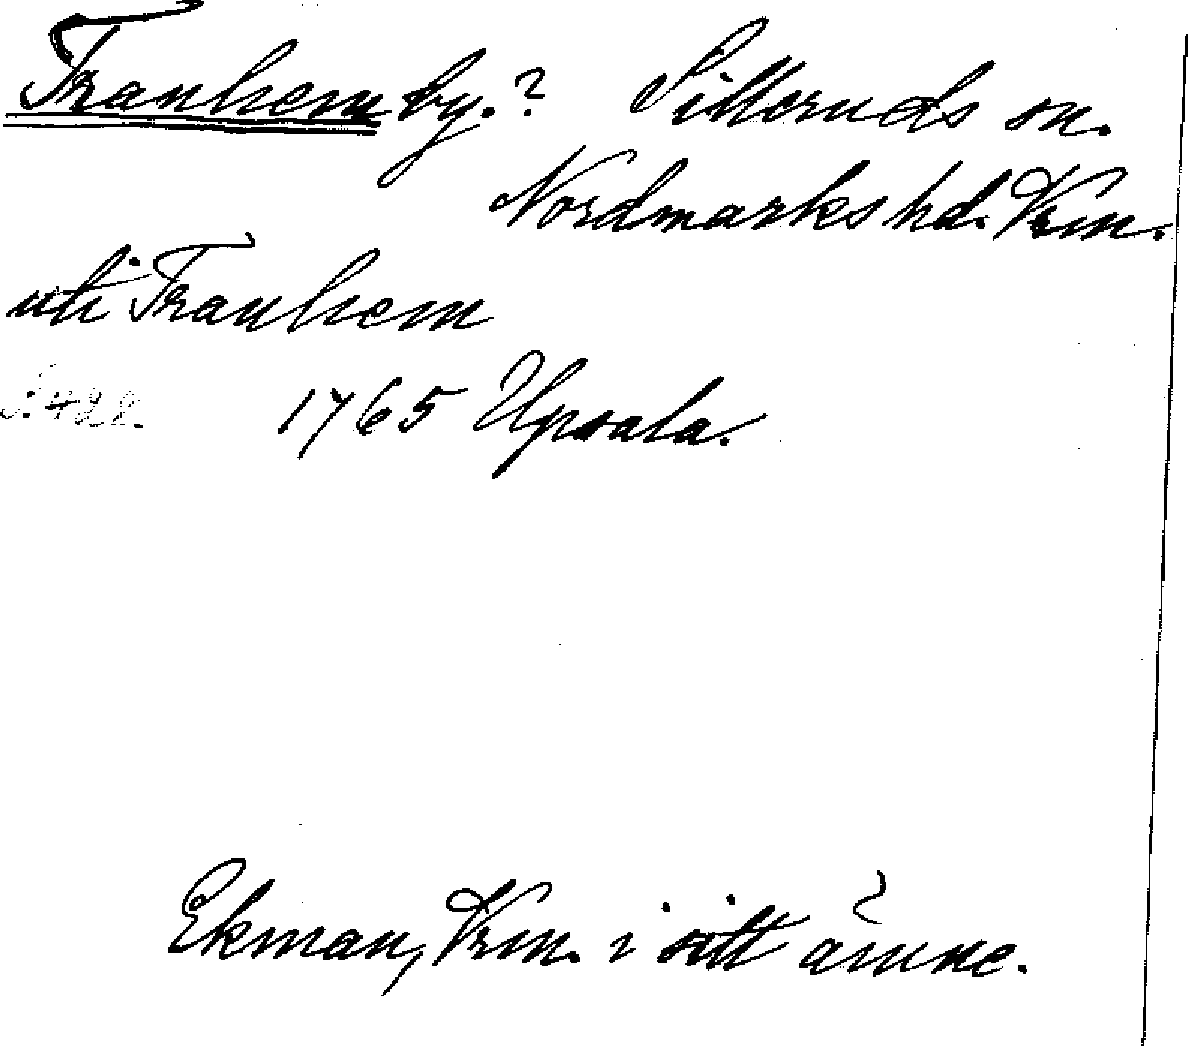 Tranhem by.? Silleruds sn.
Nordmarks hd. Vrm.
uti Tranhem
S. 428. 1765 Upsala.
Ekman, Vrm. i sitt ämne.